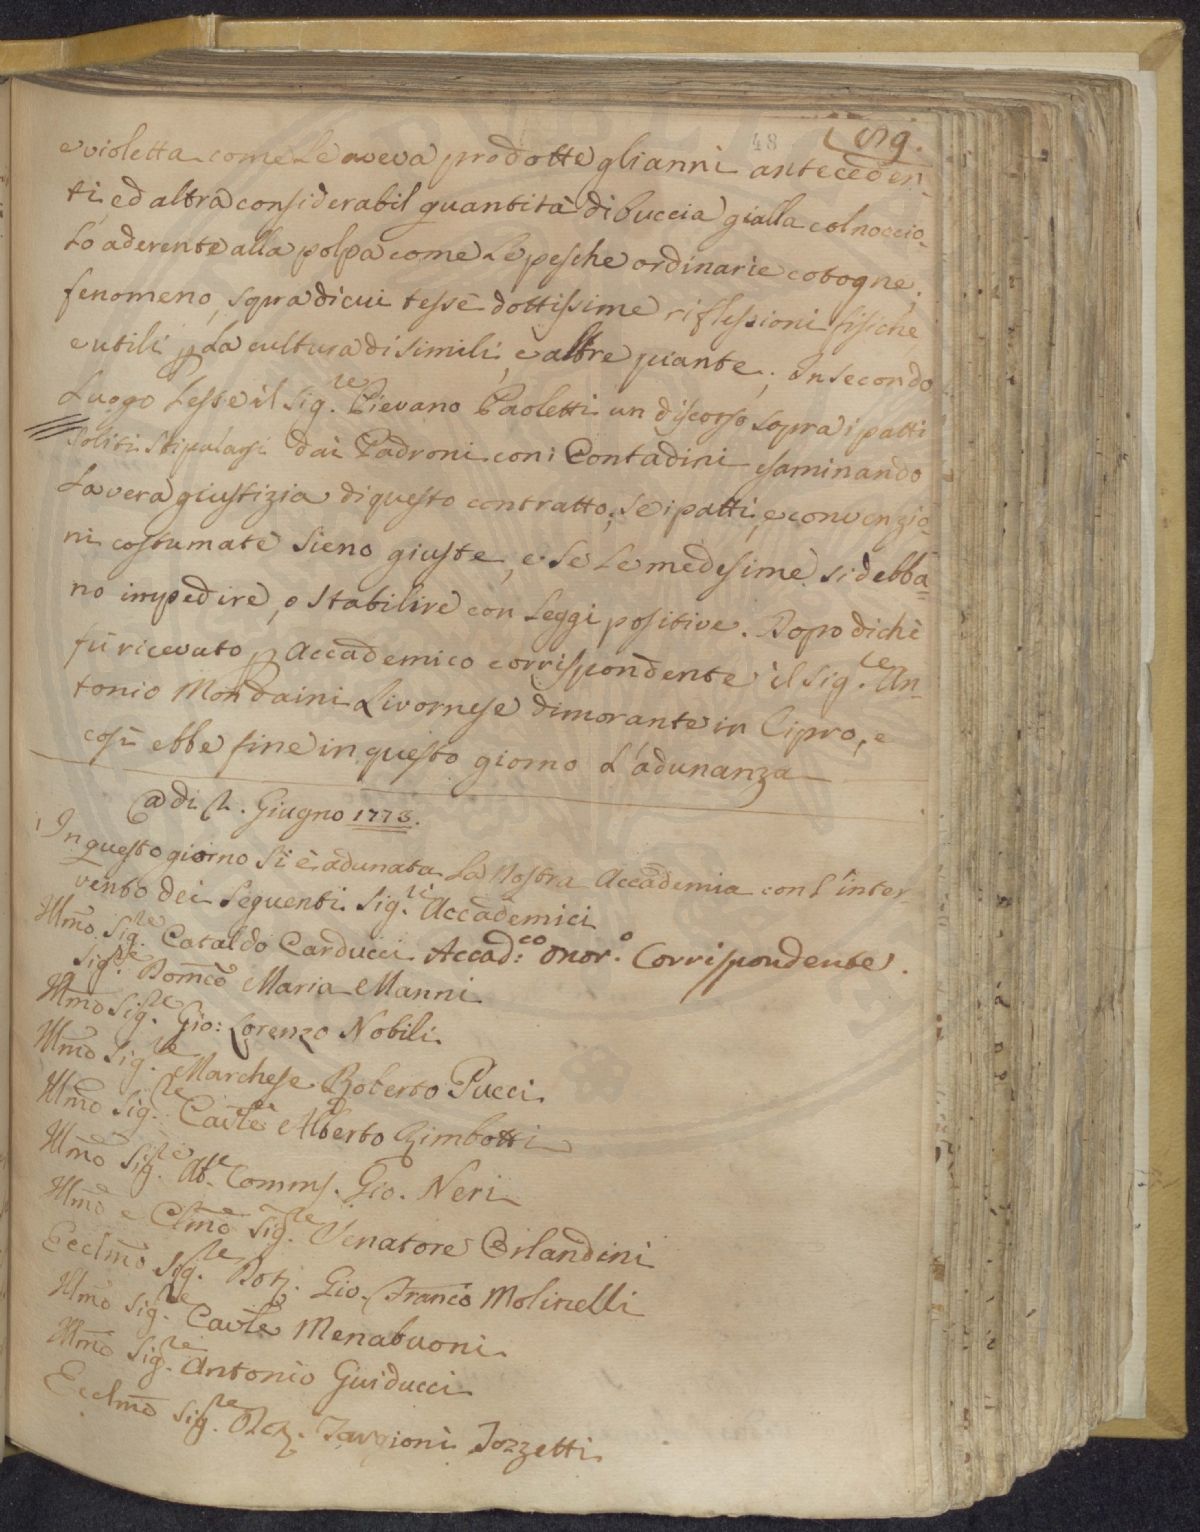 48
e violetta come le aveva prodotte gli anni anteceden-
ti, ed altra considerabil quantità di buccia gialla col noccio-
lo aderente alla polpa come le pesche ordinarie cotogne,
fenomeno, sopra di cui tessè dottissime riflessioni fisiche
e utili p la cultura di simili, e altre piante; In secondo
Luogo Lesse il Sig.re Pievano Paoletti un discorso sopra i patti
soliti stipularsi dai Padroni con i Contadini esaminando
la vera giustizia di questo contratto, se i patti, e convenzio-
ni costumate sieno giuste, e se le medesime si debba-
no impedire, o stabilire con leggi positive. Dopo di chè
fù ricevuto p Accademico corrispondente il Sig.re An-
tonio Mondaini Livornese dimorante in Cipro, e
così ebbe fine in questo giorno l'adunanza
Giugno 1773.
In questo giorno si è adunata la nostra Accademia con l'inter-
vento dei seguenti Sig.ri Accademici
Illmo Sig.re Cataldo Carducci Accad:co onor:o Corrispondente.
Sig.re Domco Maria Manni
Illmo Sig.re Gio: Lorenzo Nobili
Illmo Sig.re Marchese Roberto Pucci
Illmo Sig.re Cavle Alberto Rimbotti
Illmo Sig.re Ab.e Comms. Gio. Neri
Illmo e Clmo Sig.re Senatore Orlandini
Ecclmo Sig.re Dott. Gio. Franco Molinelli
Illmo Sig.re Cavle Menabuoni
Illmo Sig.re Antonio Guiducci
Ecclmo Sig.re Targioni Tozzetti